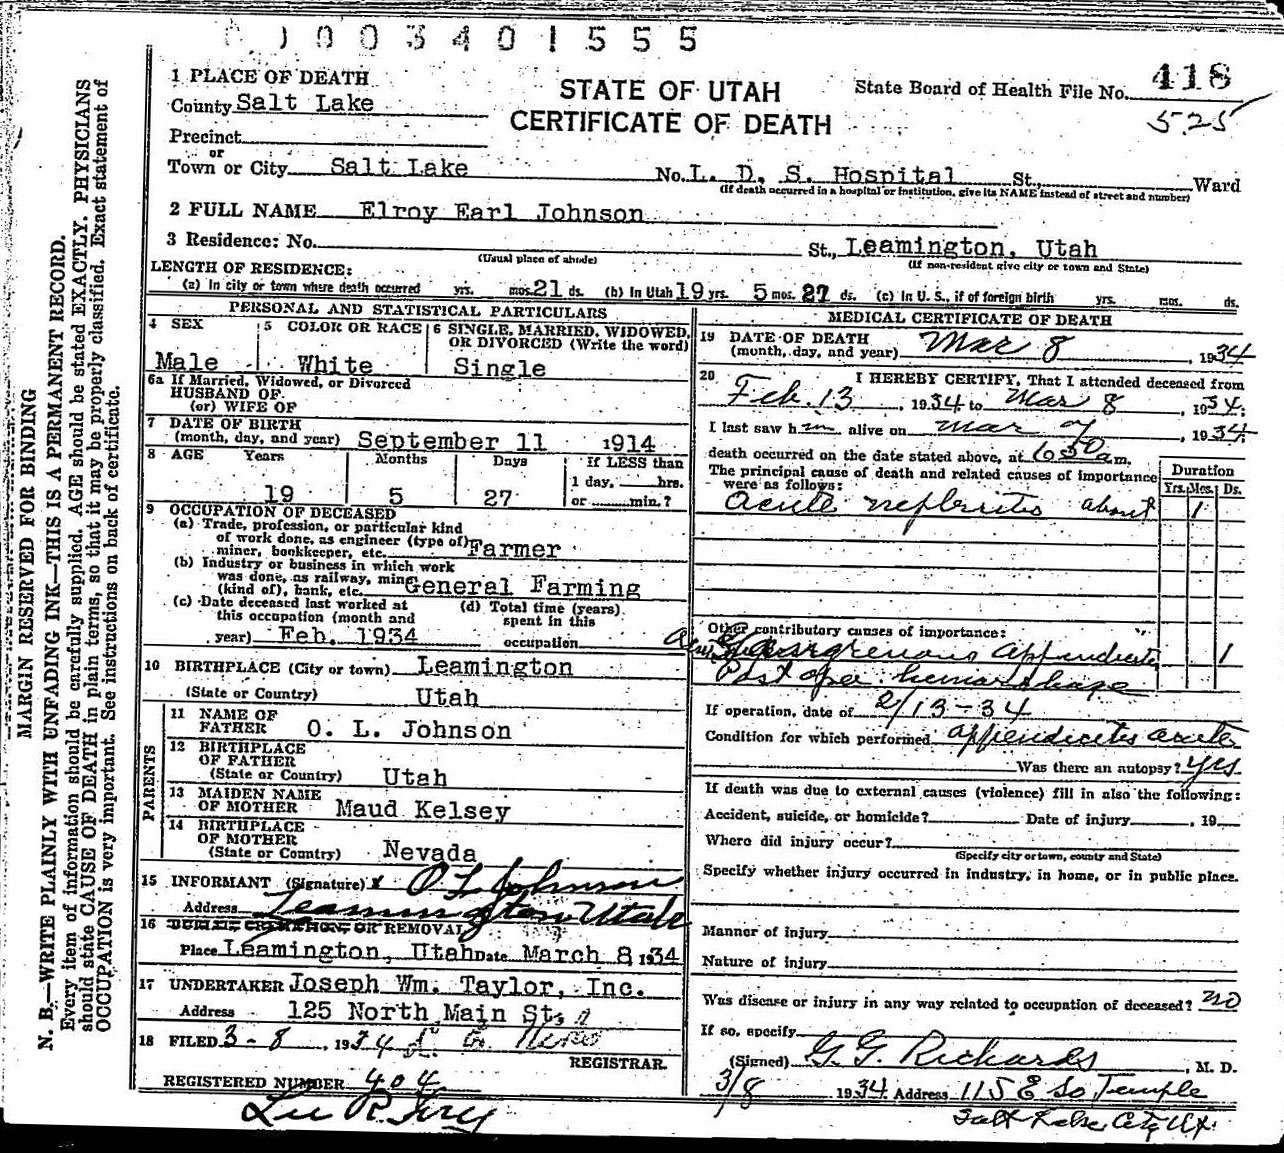 0003401555
1 PLACE OF DEATH
STATE OF UTAH
CERTIFICATE OF DEATH
State Board of Health File No. 418
525
County Salt Lake
Precinct
or
Town or City Salt Lake No. L. D. S. Hospital St., Ward
(If death occurred in a hospital or institution, give its NAME instead of street and number)
2 FULL NAME Elroy Earl Johnson
3 Residence: No. St., Leamington, Utah
(Usual place of abode) (If non-resident give city or town and State)
LENGTH OF RESIDENCE:
(a) In city or town where death occurred yrs. mos. 21 ds. (b) In Utah 19 yrs. 5 mos. 27 ds. (c) In U. S., if of foreign birth yrs. mos. ds.
PERSONAL AND STATISTICAL PARTICULARS
4 SEX
Male
5 COLOR OR RACE
White
6 SINGLE, MARRIED, WIDOWED,
OR DIVORCED (Write the word)
Single
6a If Married, Widowed, or Divorced
HUSBAND OF
(or) WIFE OF
7 DATE OF BIRTH
(month, day, and year) September 11 1914
8 AGE Years Months Days If LESS than
1 day, hrs.
19 5 27 or min.?
9 OCCUPATION OF DECEASED
(a) Trade, profession, or particular kind
of work done, as engineer (type of)
miner, bookkeeper, etc. Farmer
(b) Industry or business in which work
was done, as railway, mine
(kind of), bank, etc. General Farming
(c) Date deceased last worked at
this occupation (month and
year) Feb. 1934
(d) Total time (years)
spent in this
occupation
10 BIRTHPLACE (City or town) Leamington
(State or Country) Utah
PARENTS
11 NAME OF
FATHER O. L. Johnson
12 BIRTHPLACE
OF FATHER
(State or Country) Utah
13 MAIDEN NAME
OF MOTHER Maud Kelsey
14 BIRTHPLACE
OF MOTHER
(State or Country) Nevada
15 INFORMANT (Signature) x O L Johnson
Address Leamington Utah
16 BURIAL, CREMATION, OR REMOVAL
Place Leamington, Utah Date March 8 1934
17 UNDERTAKER Joseph Wm. Taylor, Inc.
Address 125 North Main St.
18 FILED 3-8, 1934
REGISTRAR.
REGISTERED NUMBER 404
MEDICAL CERTIFICATE OF DEATH
19 DATE OF DEATH
(month, day, and year) Mar 8, 1934
20 I HEREBY CERTIFY, That I attended deceased from
Feb. 13, 1934 to Mar 8, 1934.
I last saw him alive on Mar 7, 1934.
death occurred on the date stated above, at 6 50 a m.
The principal cause of death and related causes of importance
were as follows:
Duration
Yrs. Mos. Ds.
acute nephritis about 1
Other contributory causes of importance:
Gangrenous appendicitis 1
Post oper. hemorrhage
If operation, date of 2/13-34
Condition for which performed appendicitis acute
Was there an autopsy? yes
If death was due to external causes (violence) fill in also the following:
Accident, suicide, or homicide? Date of injury , 19
Where did injury occur?
(Specify city or town, county and State)
Specify whether injury occurred in industry, in home, or in public place.
Manner of injury
Nature of injury
Was disease or injury in any way related to occupation of deceased? no
If so, specify
(Signed) G. G. Richards, M. D.
3/8 1934 Address 115 E So Temple
Salt Lake City Ut.
MARGIN RESERVED FOR BINDING
N. B.—WRITE PLAINLY WITH UNFADING INK—THIS IS A PERMANENT RECORD.
Every item of information should be carefully supplied. AGE should be stated EXACTLY. PHYSICIANS
should state CAUSE OF DEATH in plain terms, so that it may be properly classified. Exact statement of
OCCUPATION is very important. See instructions on back of certificate.